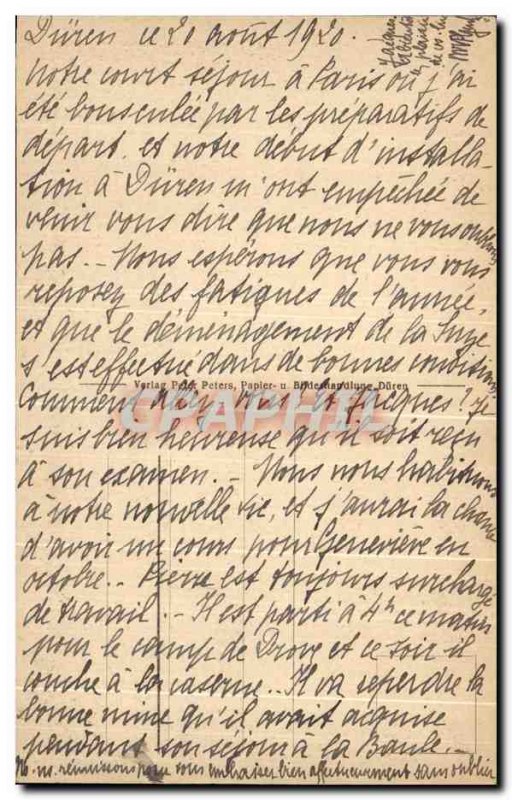 Düren ce 20 août 1920.
Notre court séjour à Paris où j'ai
été bousculée par les préparatifs de
départ, et notre début d'installa-
tion à Düren m'ont empêchée de
venir vous dire que nous ne vous oublions
pas. - Nous espérons que vous vous
reposez des fatigues de l'année,
et que le déménagement de la
s'est effectué dans de bonnes conditions.
Verlag Peter Peters, Papier- u. Bilderhandlung, Düren
Comment allez vous et Jacques? je
suis bien heureuse qu'il soit reçu
à son examen. - Nous nous habituons
à notre nouvelle vie, et j'aurai la chance
d'avoir un cours pour Geneviève en
octobre.. Pierre est toujours surchargé
de travail. - Il est parti à 4h ce matin
pour le camp de Drove et ce soir il
couche à la caserne.. Il va reperdre la
bonne mine qu'il avait acquise
pendant son séjour à la Baule. -
ns. ns. réunissons pour vous embrasser bien affectueusement sans oublier
Jacques
CPAPHIL